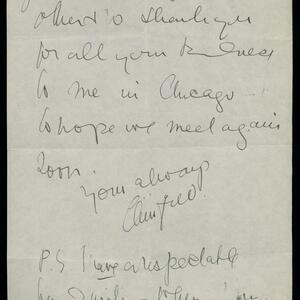 to thank you
for all your kindness
to me in Chicago
to hope we meet again
soon.
Yours always
P.S. I have a respectable